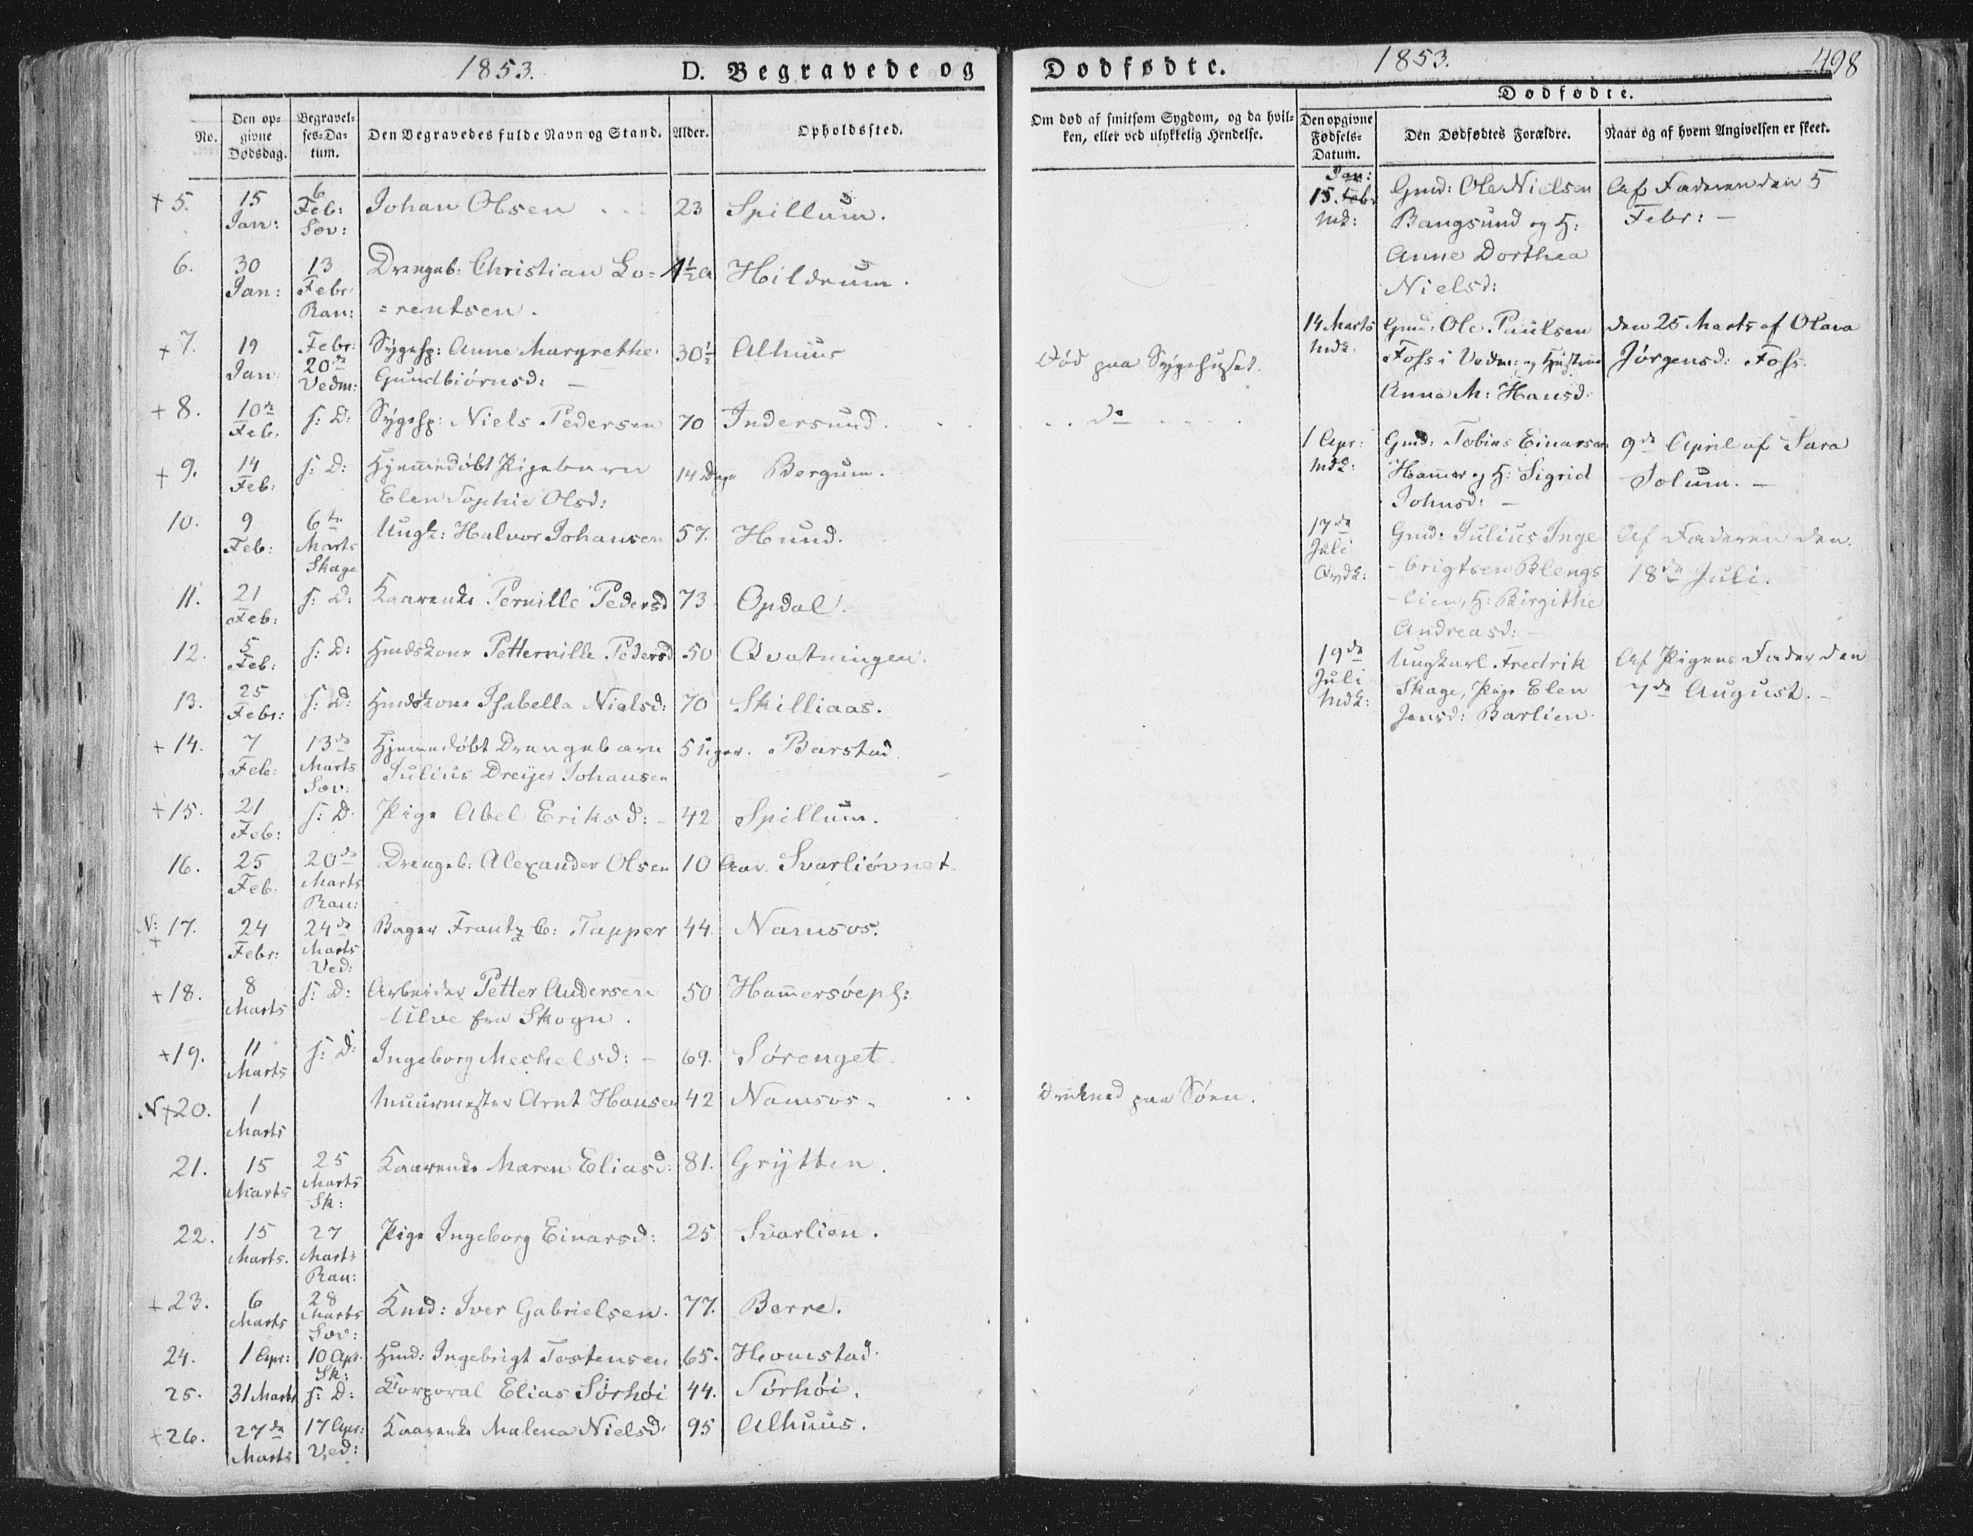 1853.
D. Begravede og
No.
Den op-
givne
Dødsdag.
Begravel-
ses-Da-
tum.
Den Begravedes fulde Navn og Stand.
Alder.
Opholdssted.
+ 5. 15 Jan: 6 Feb: Sæv: Johan Olsen 23 Spillum.
6. 30 Jan: 13 Febr. Ran: Drengeb: Christian Lo= 1½ a Hildrum.
=rentsen.
+ 7. 19 Jan: Febr: 20de Vedm: Sygesp: Anne Margrethe 30½ Alhuus
Gundbiørnsd: —
+ 8. 10de Feb. s: D: Sygesp: Niels Pedersen 70 Indersund.
+ 9. 14 Feb: s: D: Hjemmedøbt Pigebarn 14 Dage Bergum.
Elen Sophie Olsd:
10. 9 Feb: 6te Marts Skage Ungk: Halvor Johansen 57. Hund.
11. 21 Feb: s: D: Kaarenke Pernille Pedersd 73 Opdal.
12. 5 Feb: s: D: Hmdskone Petternille Pedersd 50 Qvatningen.
13. 25 Febr: s: D: Hmdskone Isabella Nielsd: 70 Skilliaas.
+ 14. 7 Feb: 13de Marts Sæv: Hjemmedøbt Drengebarn 5 Uger. Barstad.
Julius Dreyer Johansen
+ 15. 21 Feb: s: D. Pige Abel Eriksd: - 42 Spillum.
16. 25 Feb. 20de Marts Ran: Drengeb: Alexander Olsen 10 Aar. Svarliøvnet.
N: + 17. 24 Febr: 24de Marts Ved: Bager Frantz C: Tapper 44. Namsos.
+ 18. 8 Marts s: D: Arbeider Petter Andersen 50 Hammersøepl:
Ulve fra Skogn.
+ 19. 11 Marts s: D: Ingeborg Mechelsd: - 69. Sørenget.
N + 20. 1 Marts Muurmester Arnt Hansen 42 Namsos.
21. 15 Marts 25 Marts Sk: Kaarenke Maren Eliasd: 81. Grytten.
22. 15 Marts. 27 Marts Ran: Pige Ingeborg Einarsd: 25 Svarlien.
+ 23. 6 Marts 28 Marts Sæv: Kmd: Iver Gabrielsen. 77. Berre.
24. 1 Apr: 10 Apr. Sk: Hmd: Ingebrigt Tostensen 65. Homstad.
25. 31 Marts s: D: Corporal Elias Sørhøi 44. Sørhøi.
+ 26. 27de Marts 17 Apr: Ved: Kaarenke Malena Nielsd. 95 Alhuus.
Dødfødte.
1853.
498
Om død af smitsom Sygdom, og da hvil-
ken, eller ved ulykkelig Hendelse.
Død paa Sygehuset.
do
Druknet paa Søen.
Dødfødte.
Den opgivne
Fødsels-
Datum.
Den Dødfødtes Forældre.
Naar og af hvem Angivelsen er skeet.
Jan:
15. Febr Gmd: Ole Nielsen Af Faderen den 5
Mdk: Bangsund og H: Febr: —
Anne Dorthea
Nielsd:
14 Marts Gmd: Ole Paulsen den 25 Marts af Olava
Mdk: Foss i Vedm: og Hustrue Jørgensd: Foss.
Anne M: Hansd.
1 Apr: Gmd: Tobias Einarsen 9de April af Sara
Mdk: Hammer og H: Sigrid Solum. —
Johnsd: —
17de Gmd: Julius Inge Af Faderen den
Juli -brigtsen Blengs 18de Juli.
Qvdk: -lien, H: Birgithe
Andreasd: —
19de Ungkarl Fredrik Af Pigens Fader den
Juli Skage, Pige Elen 7de August. -
Mdk: Jensd: Barlien.